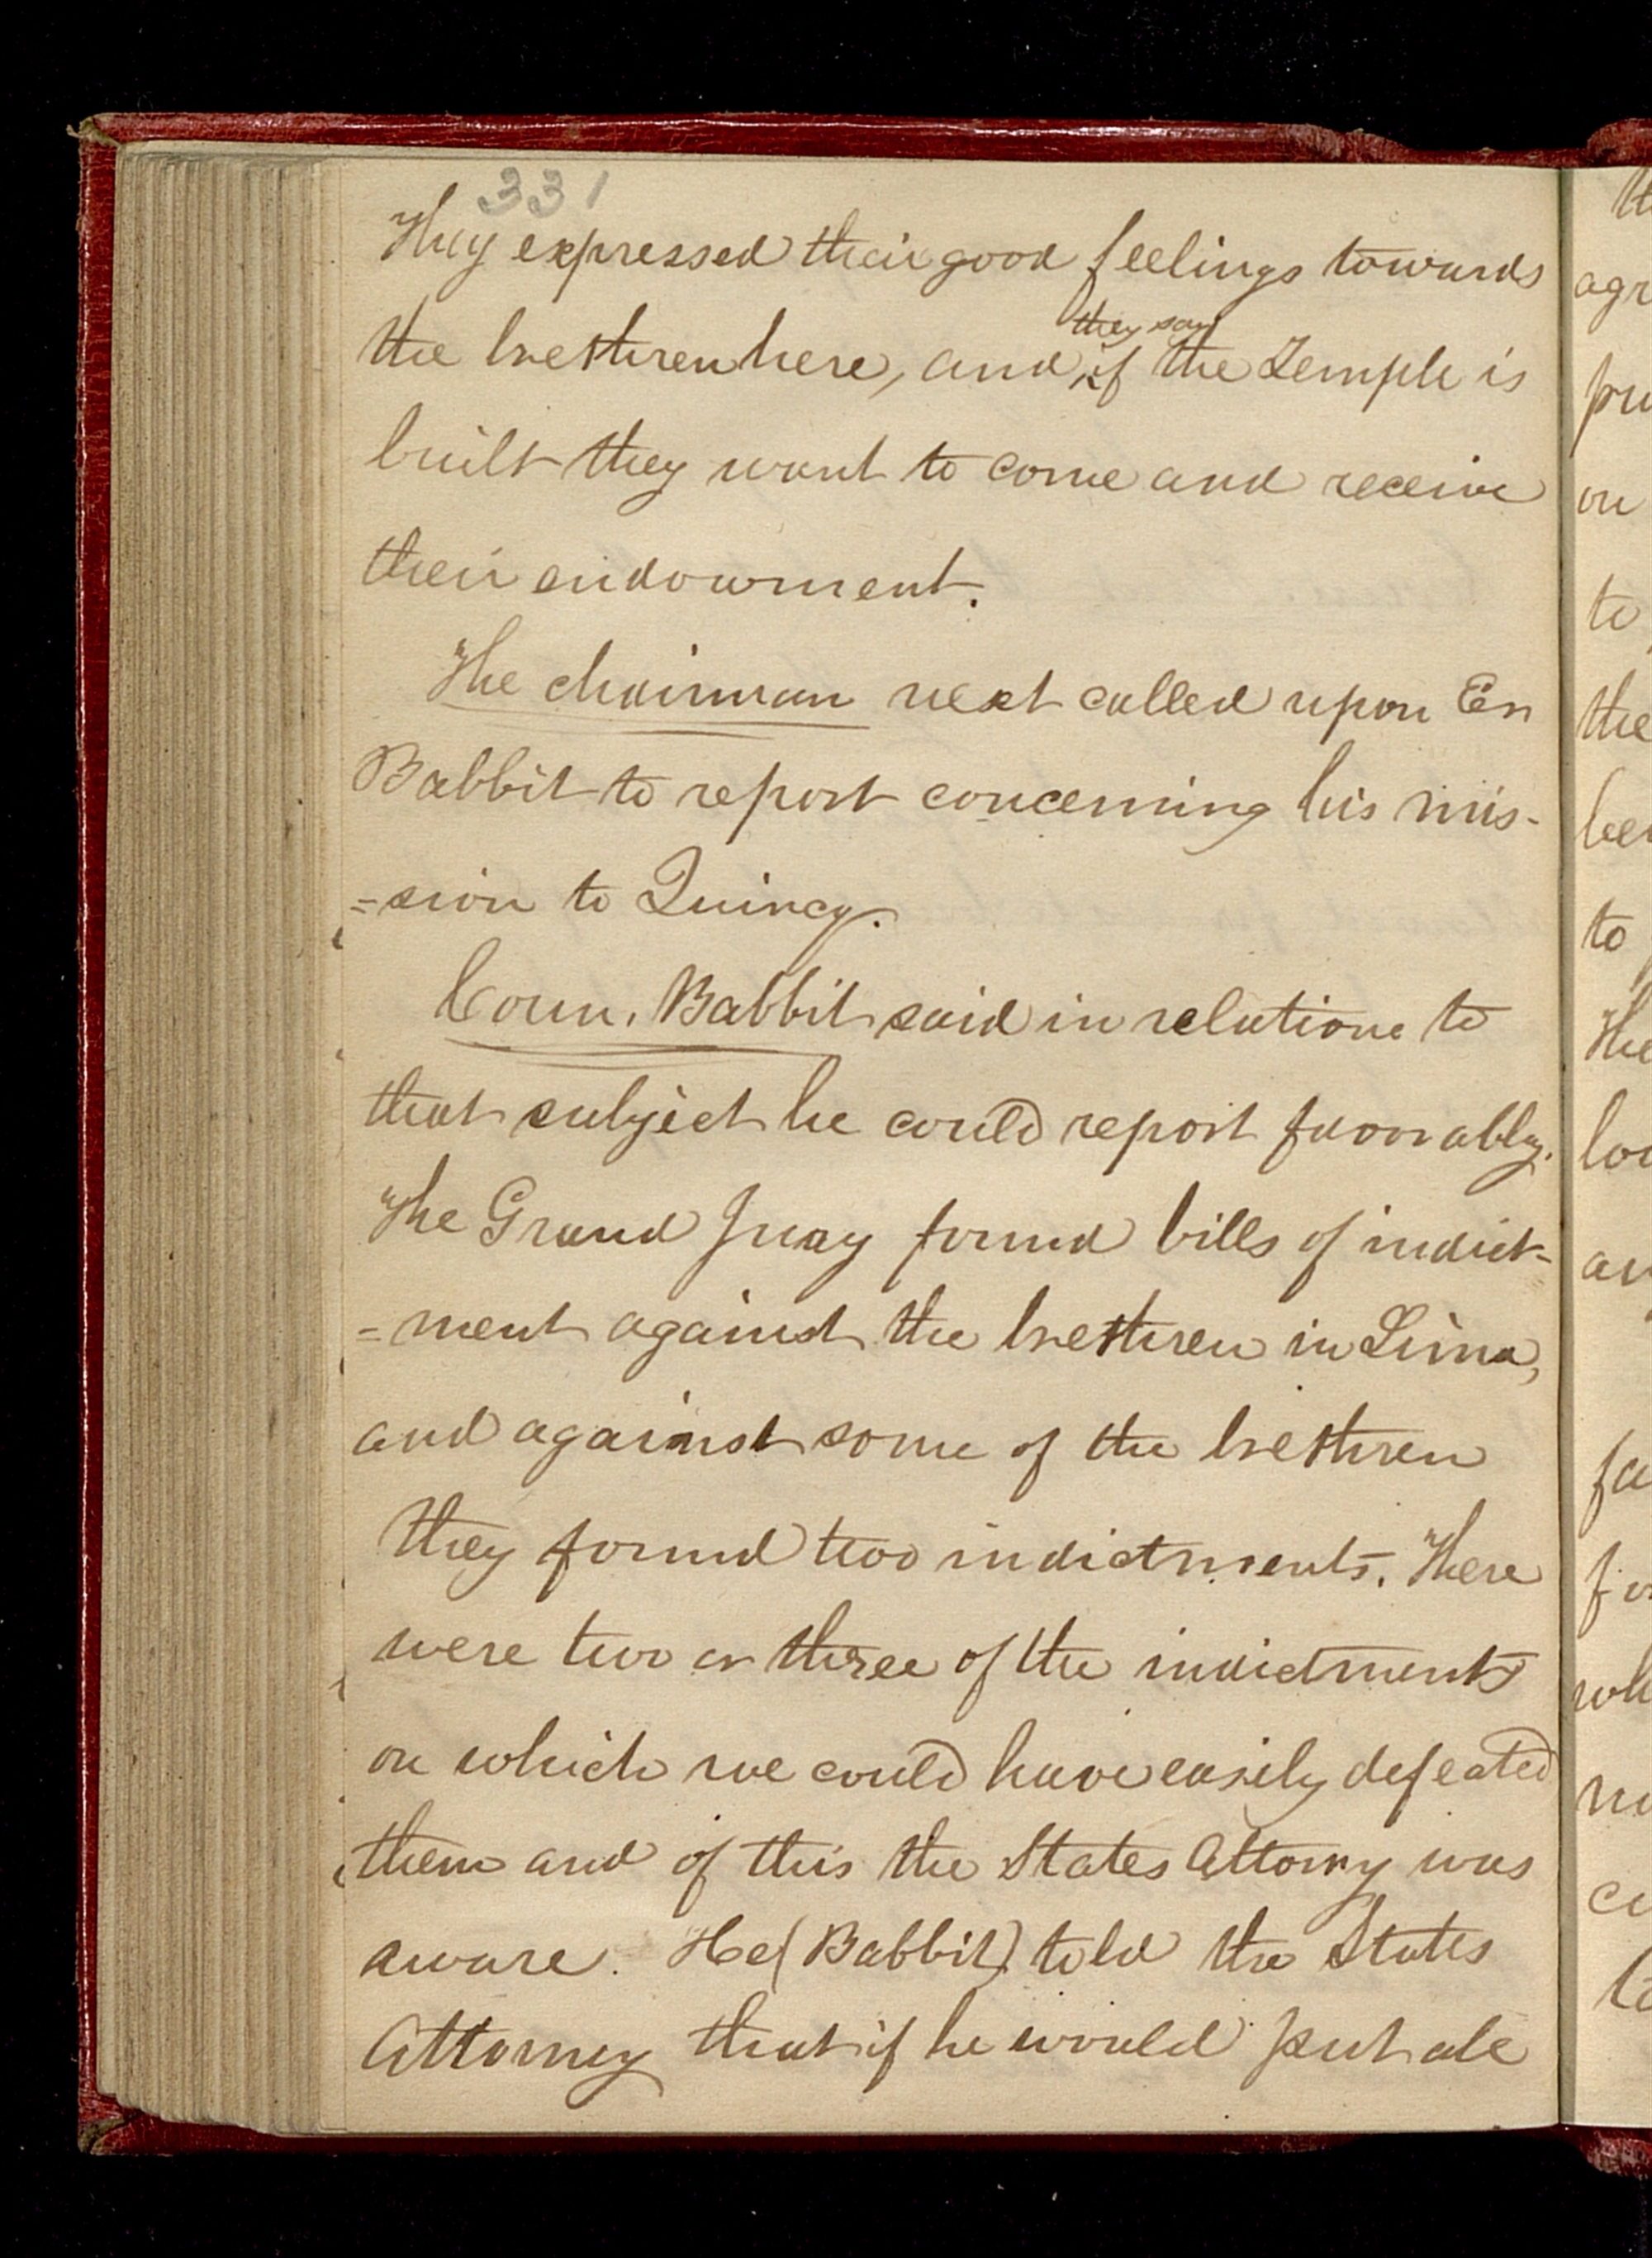 331
They expressed their good feelings towards
they say
the brethren here, and if the Temple is
built they want to come and receive
their endowment.
The chairman next called upon Er
Babbit to report concerning his mis-
=sion to Quincy.
Coun. Babbit said in relation to
that subject he could report favorably.
The Grand Jury found bills of indict-
=ment against the brethren in Lima,
and against some of the brethren
they found two indictments. There
were two or three of the indictments
on which we could have easily defeated
them and of this the States Attorny was
aware. He (Babbit) told the States
Attorney that if he would put all